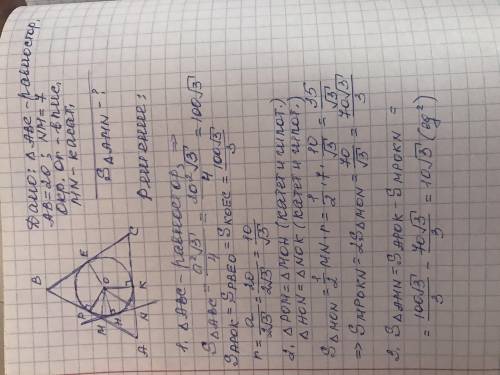 Дано: △ABC - равностор,
AB = 20; NM = 7
Окр, Or - впис,
MN - касат.
S△AMN - ?
B
P
E
M
H
O
A
N
K
C
Решение:
1. △ABC - равностор, ⇒
S△ABC = a²√3/4 = 20²√3/4 = 100√3
SAPOK = SPBEO = SKOEC = 100√3/3
r = a/2√3 = 20/2√3 = 10/√3
2. △POM = △MOH (катет и гипот.)
△HON = △NOK (катет и гипот.)
S△MON = 1/2 MN · r = 1/2 · 7 · 10/√3 = 35/√3
⇒ SMPOKN = 2S△MON = 70/√3 = 70√3/3
3. S△AMN = SAPOK - SMPOKN =
= 100√3/3 - 70√3/3 = 10√3 (ед²)